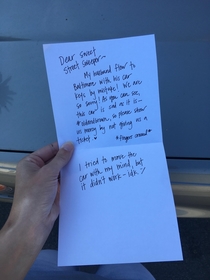 Dear sweet
Street Sweeper-
My husband flew to
Baltimore with his car
keys by mistake! We are
so sorry! As you can see,
this car is sad as it is-
so please show
us mercy by not giving us a
ticket
*fingers crossed*
I tried to move the
car with my mind, but
it didn't work - idk